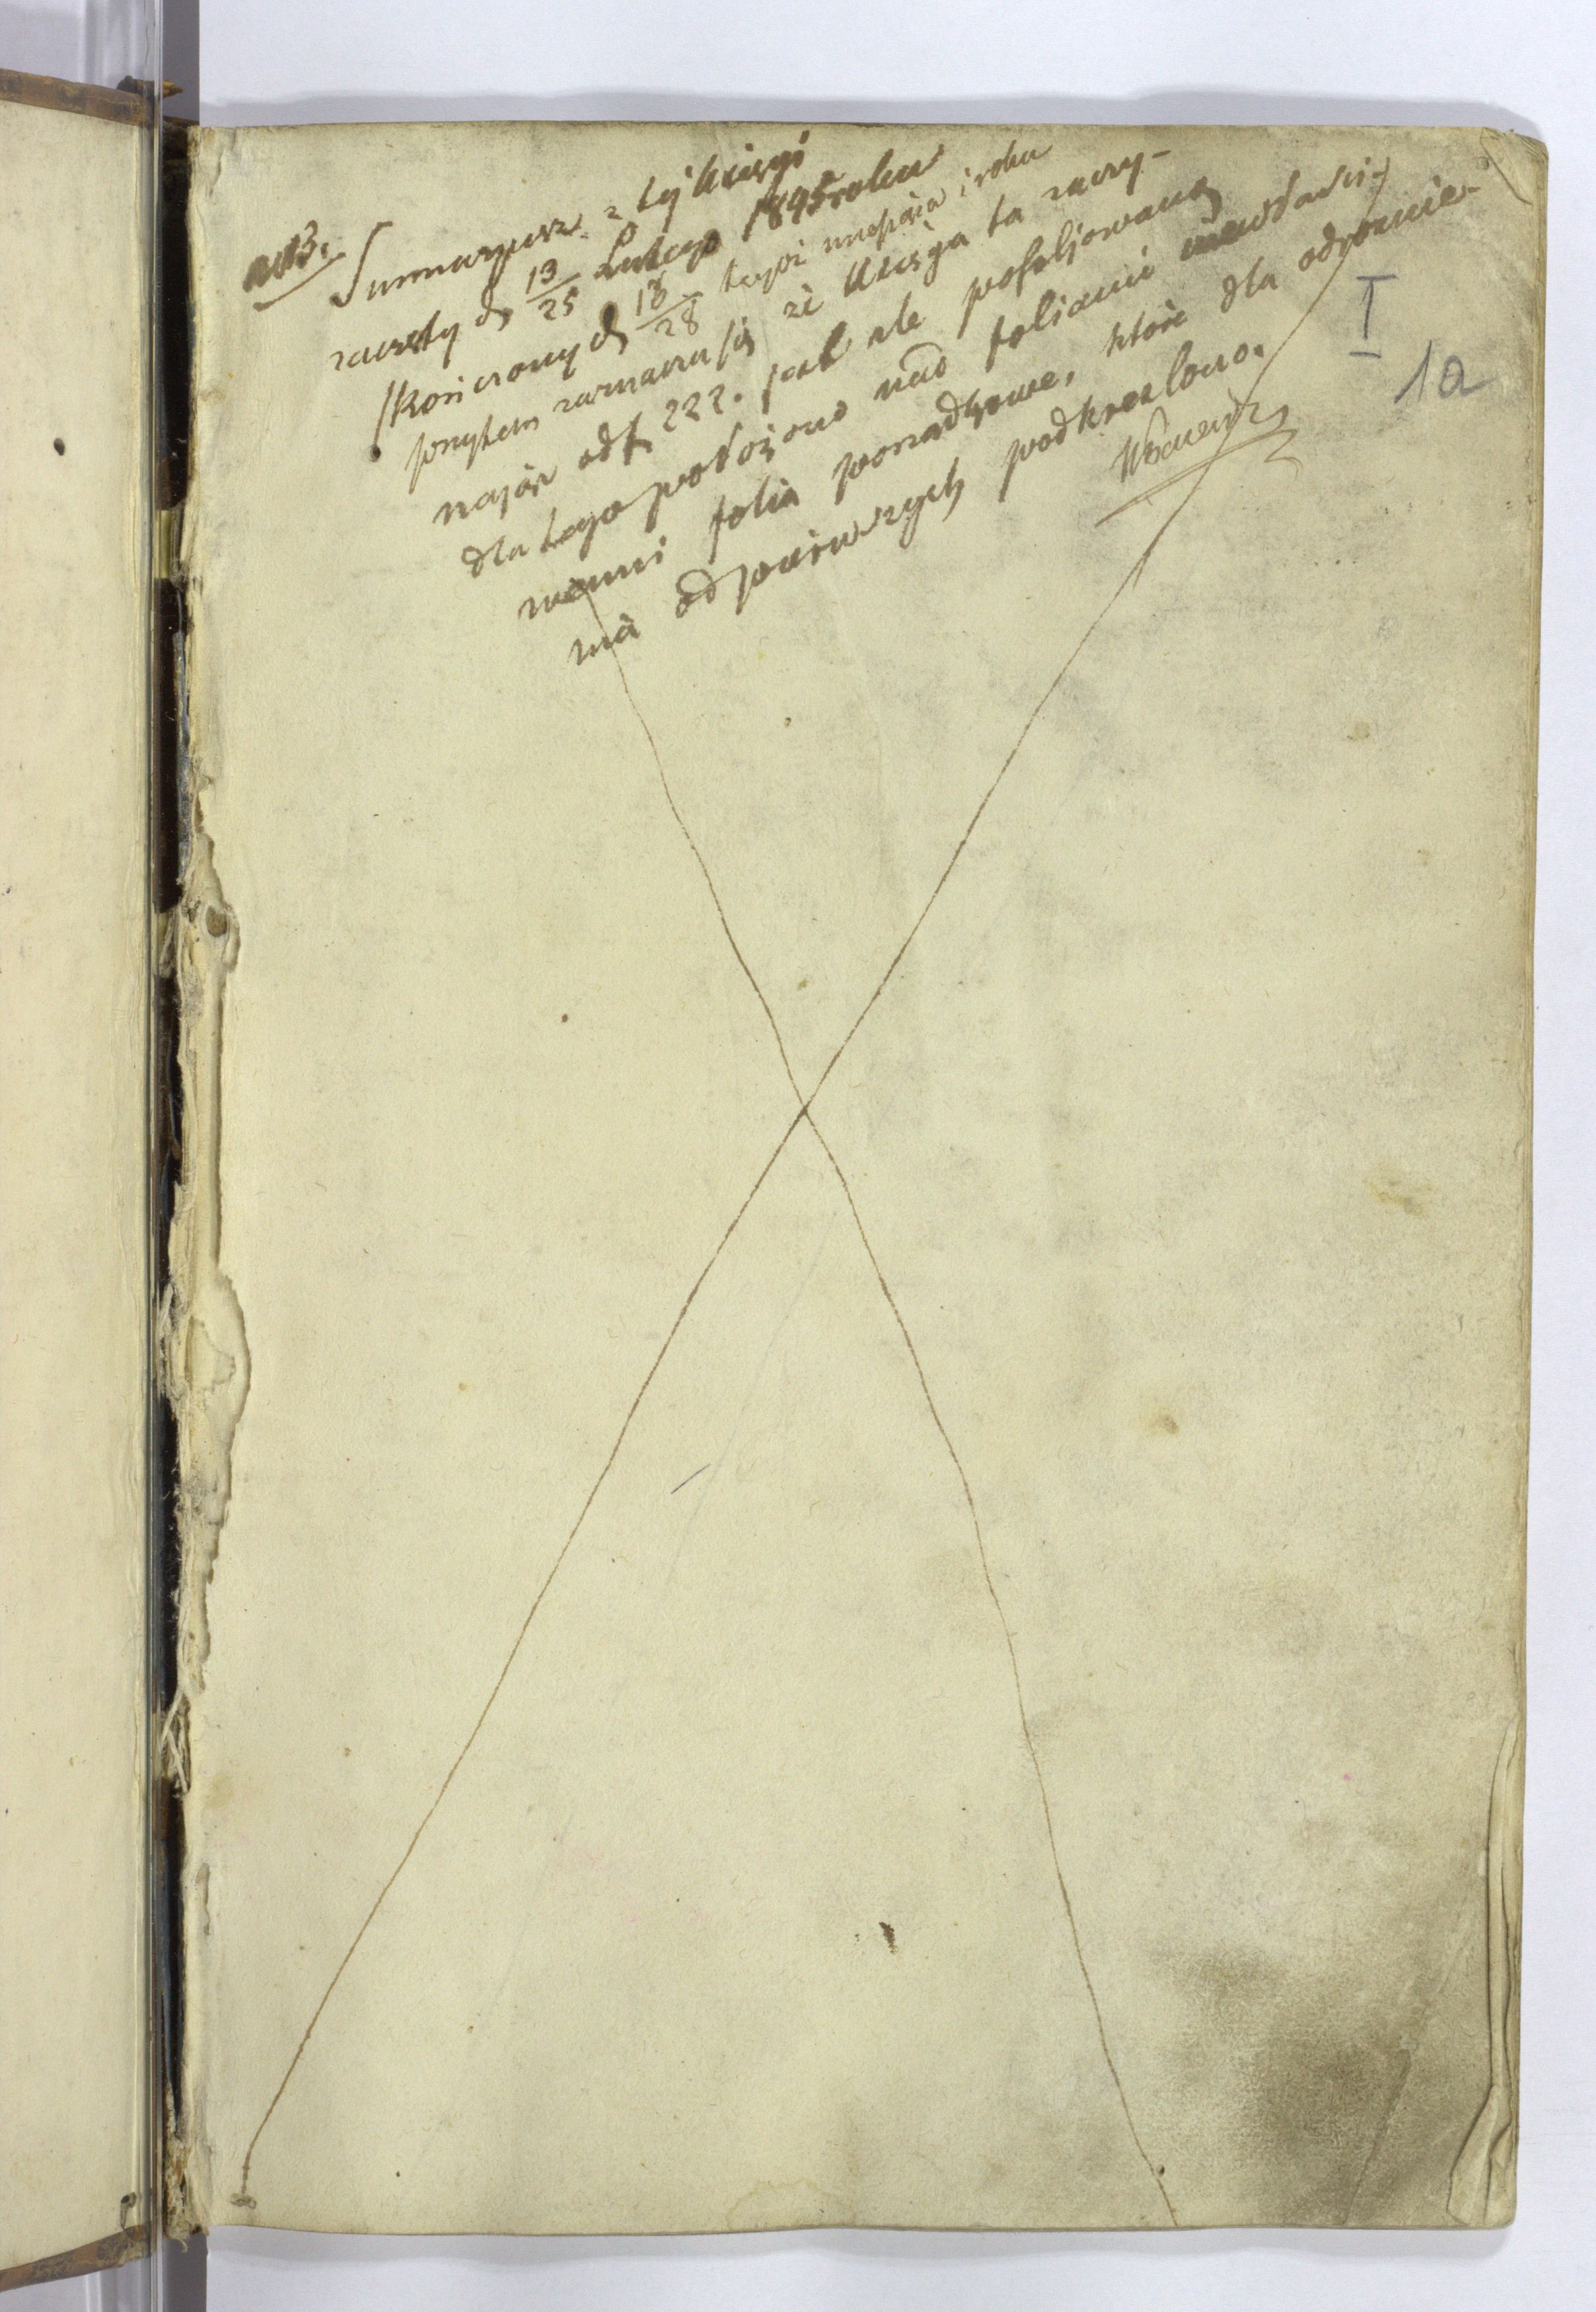 NB. Summaryusz z tej Księgi
zaczęty d. 13/25 Lutego 1845 roku
skończony d. 16/28 tegoż miesiąca i roku
przytem zaznacza się że Księga ta zaczy-
nając od f. 222. jest źle pofoljowaną
dla tego położono nad foliami niewłaści-
wemi folia porządkowe, które dla odróżnie-
nia od pierwszych podkreślono.
I
1a